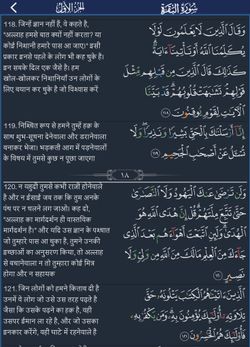 الجزء الأول
سُورَةُ البَقَرَة
118. जिन्हें ज्ञान नहीं हैं, वे कहते है,
"अल्लाह हमसे बात क्यों नहीं करता? या
कोई निशानी हमारे पास आ जाए।" इसी
प्रकार इनसे पहले के लोग भी कह चुके है।
इन सबके दिल एक जैसे है। हम
खोल-खोलकर निशानियाँ उन लोगों के
लिए बयान कर चुके है जो विश्वास करें
وَقَالَ الَّذِينَ لَا يَعْلَمُونَ لَوْلَا
يُكَلِّمُنَا اللَّهُ أَوْ تَأْتِينَا ءَايَةٌ
كَذَٰلِكَ قَالَ الَّذِينَ مِن قَبْلِهِم مِّثْلَ
قَوْلِهِمْ تَشَٰبَهَتْ قُلُوبُهُمْ قَدْ بَيَّنَّا
الْآيَٰتِ لِقَوْمٍ يُوقِنُونَ ١١٨
119. निश्चित रूप से हमने तुम्हें हक़ के
साथ शुभ-सूचना देनेवाला और डरानेवाला
बनाकर भेजा। भड़कती आग में पड़नेवालों
के विषय में तुमसे कुछ न पूछा जाएगा
إِنَّا أَرْسَلْنَٰكَ بِالْحَقِّ بَشِيرًا وَنَذِيرًا وَلَا
تُسْـَٔلُ عَنْ أَصْحَٰبِ الْجَحِيمِ ١١٩
١٨
120. न यहूदी तुमसे कभी राज़ी होनेवाले
है और न ईसाई जब तक कि तुम अनके
पंथ पर न चलने लग जाओ। कह दो,
"अल्लाह का मार्गदर्शन ही वास्तविक
मार्गदर्शन है।" और यदि उस ज्ञान के पश्चात
जो तुम्हारे पास आ चुका है, तुमने उनकी
इच्छाओं का अनुसरण किया, तो अल्लाह
से बचानेवाला न तो तुम्हारा कोई मित्र
होगा और न सहायक
وَلَن تَرْضَىٰ عَنكَ الْيَهُودُ وَلَا النَّصَٰرَىٰ
حَتَّىٰ تَتَّبِعَ مِلَّتَهُمْ قُلْ إِنَّ هُدَى اللَّهِ هُوَ
الْهُدَىٰ وَلَئِنِ اتَّبَعْتَ أَهْوَآءَهُم بَعْدَ الَّذِي
جَآءَكَ مِنَ الْعِلْمِ مَا لَكَ مِنَ اللَّهِ مِن وَلِيٍّ وَلَا
نَصِيرٍ ١٢٠
121. जिन लोगों को हमने किताब दी है
उनमें वे लोग जो उसे उस तरह पढ़ते है
जैसा कि उसके पढ़ने का हक़ है, वही
उसपर ईमान ला रहे है, और जो उसका
इनकार करेंगे, वही घाटे में रहनेवाले है
الَّذِينَ ءَاتَيْنَٰهُمُ الْكِتَٰبَ يَتْلُونَهُ حَقَّ
تِلَاوَتِهِ أُولَٰئِكَ يُؤْمِنُونَ بِهِ وَمَن يَكْفُرْ بِهِ
فَأُولَٰئِكَ هُمُ الْخَٰسِرُونَ ١٢١